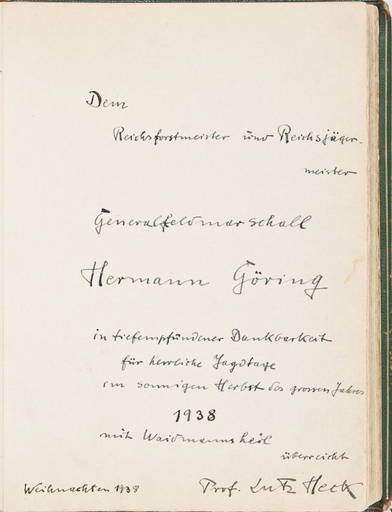 Dem
Reichsforstmeister und Reichsjäger-
meister
Generalfeldmarschall
Hermann Göring
in tiefempfundener Dankbarkeit
für herrliche Jagdtage
im sonnigen Herbst des grossen Jahres
1938
mit Waidmannsheil
überreicht
Weihnachten 1938 Prof. Lutz Heck